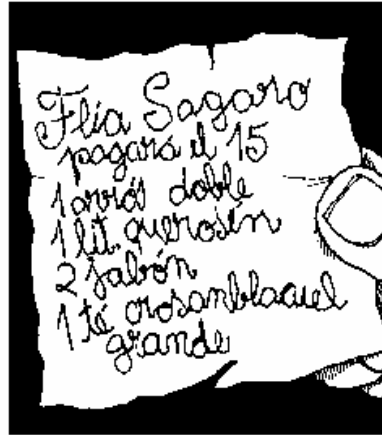 Flía Sagaro
pagará el 15
1 arrós doble
1 lit. querosen
2 jabón
1 té orosanblacuel
grande